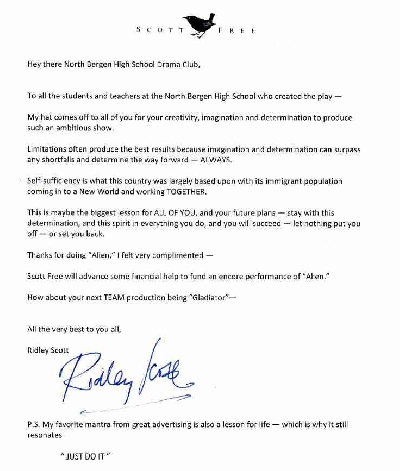 SCOTT FREE
Hey there North Bergen High School Drama Club,
To all the students and teachers at the North Bergen High School who created the play —
My hat comes off to all of you for your creativity, imagination and determination to produce
such an ambitious show.
Limitations often produce the best results because imagination and determination can surpass
any shortfalls and determine the way forward — ALWAYS.
Self-sufficiency is what this country was largely based upon with its immigrant population
coming in to a New World and working TOGETHER.
This is maybe the biggest lesson for ALL OF YOU, and your future plans — stay with this
determination, and this spirit in everything you do, and you will succeed — let nothing put you
off — or set you back.
Thanks for doing "Alien," I felt very complimented —
Scott Free will advance some financial help to fund an encore performance of "Alien."
How about your next TEAM production being "Gladiator"—
All the very best to you all,
Ridley Scott
Ridley Scott
P.S. My favorite mantra from great advertising is also a lesson for life — which is why it still
resonates
"JUST DO IT"